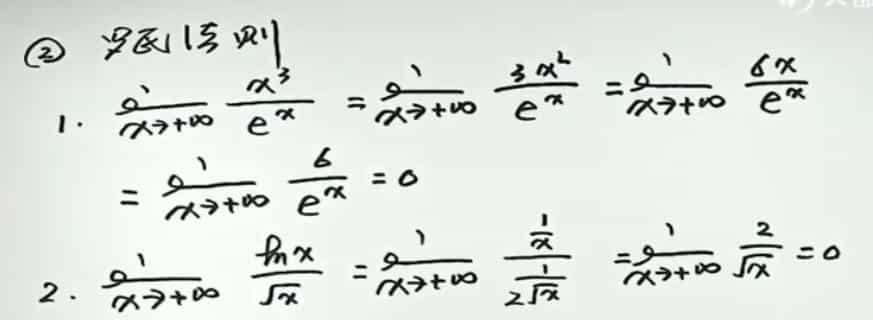 ② 洛必达法则
1. lim x→+∞ x³/eˣ = lim x→+∞ 3x²/eˣ = lim x→+∞ 6x/eˣ
= lim x→+∞ 6/eˣ = 0
2. lim x→+∞ ln x/√x = lim x→+∞ (1/x)/(1/(2√x)) = lim x→+∞ 2/√x = 0